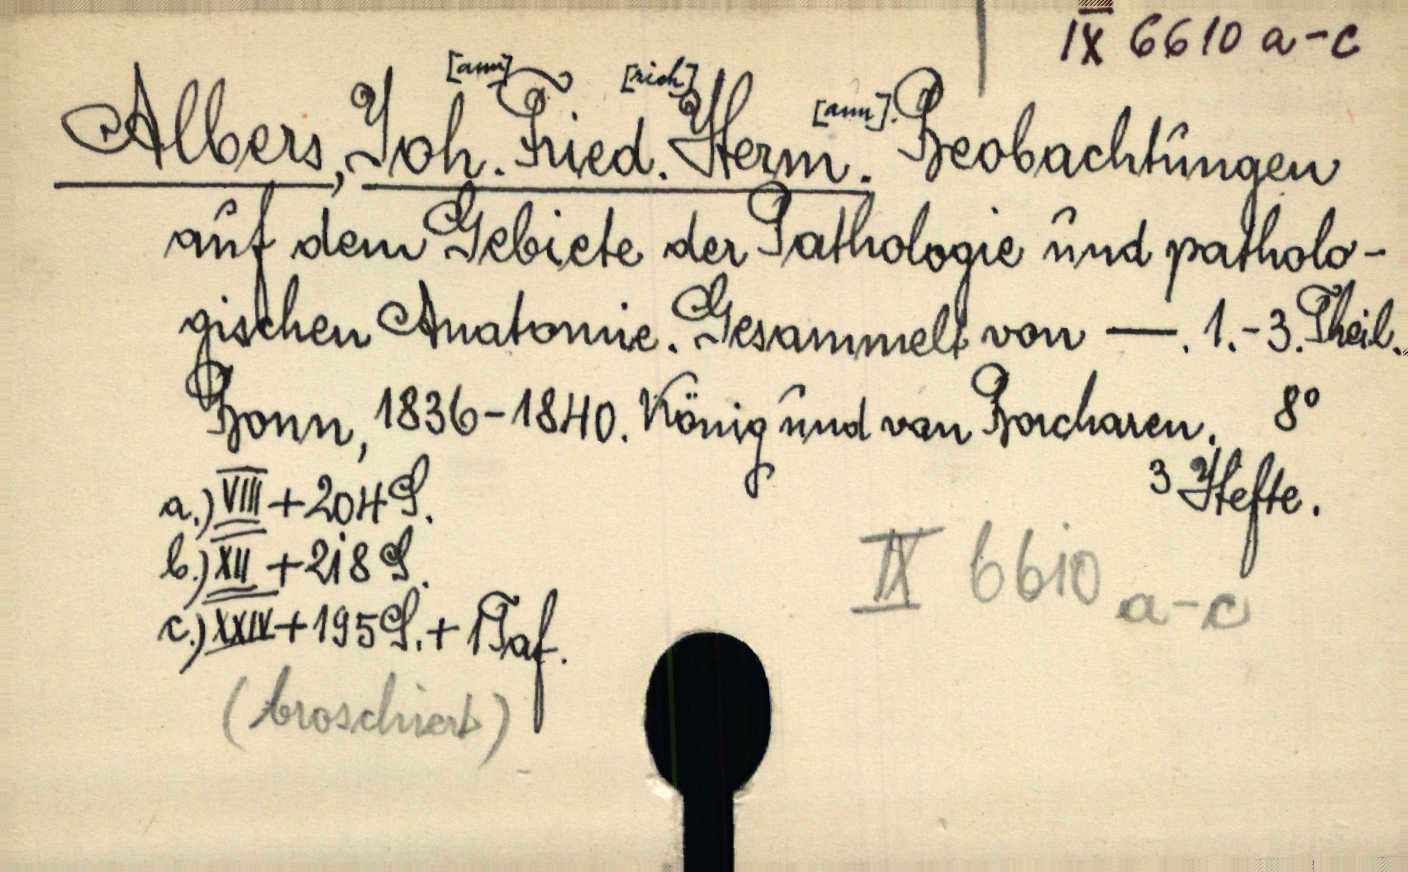 IX 6610 a-c
Albers, Joh.[ann] Fried.[rich] Herm.[ann]. Beobachtungen
auf dem Gebiete der Pathologie und patholo-
gischen Anatomie. Gesammelt von —. 1.-3. Theil.
Bonn, 1836-1840. König und van Borcharen. 8°
3 Hefte.
a.) VIII + 204 S.
b.) XII + 218 S.
c.) XXIV + 195 S. + 1 Taf.
IX 6610 a-c
(broschiert)